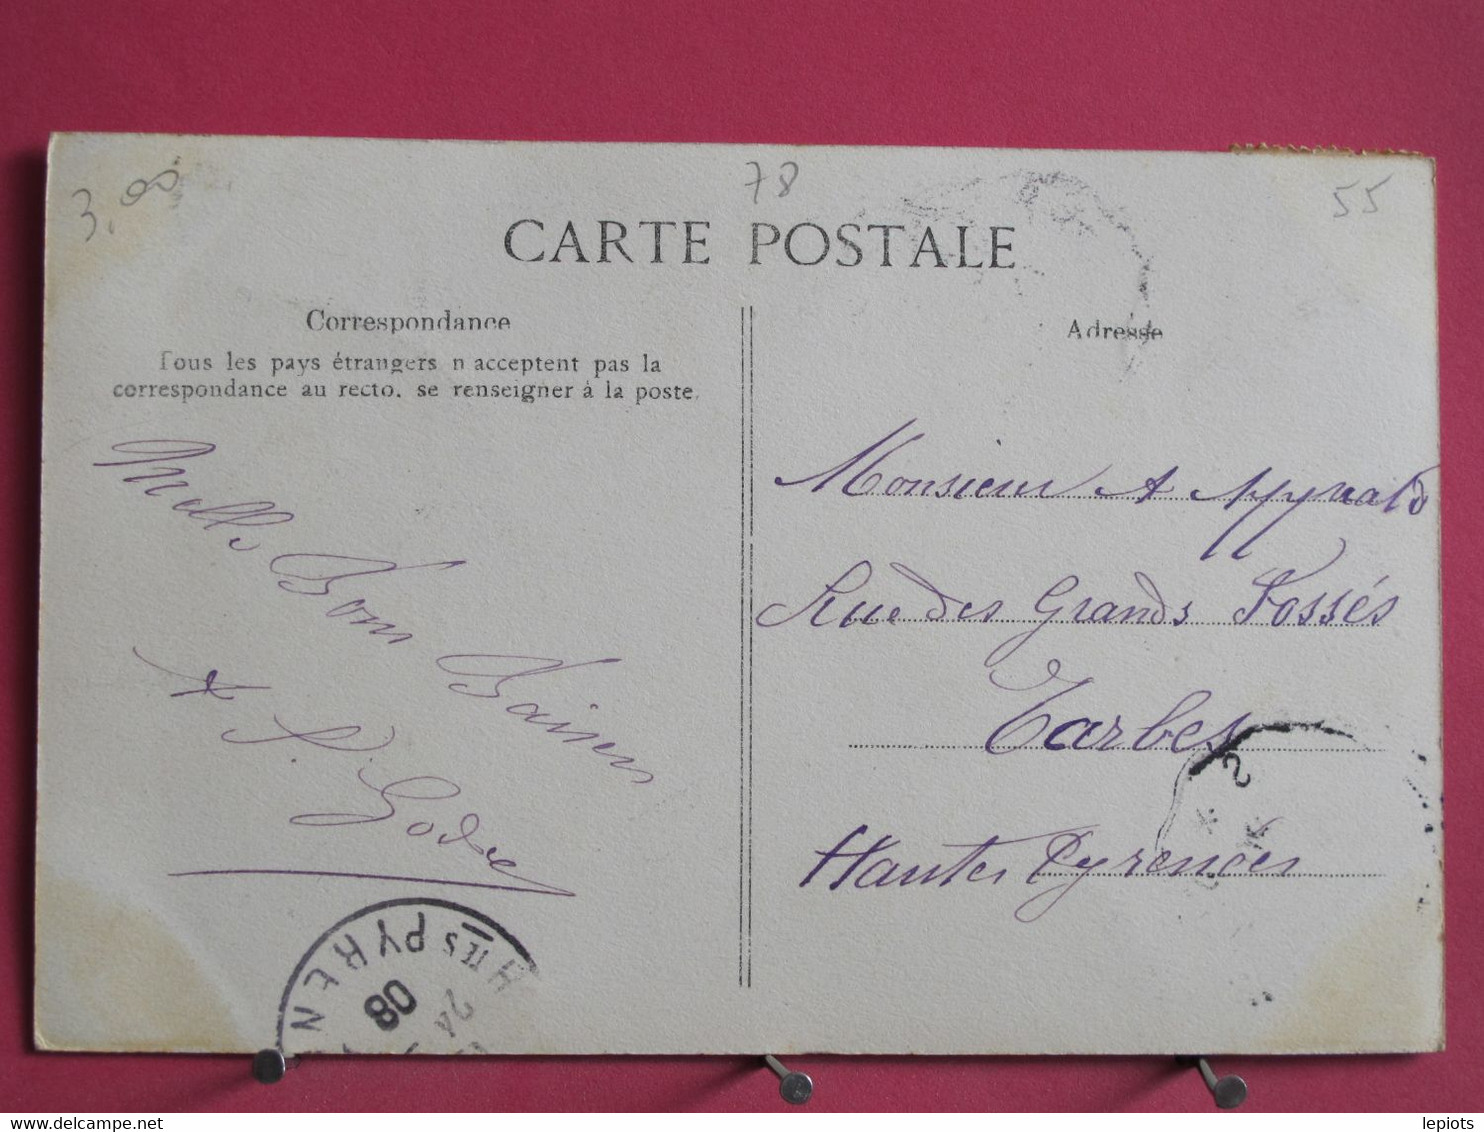 3,00
78
55
CARTE POSTALE
Correspondance
Tous les pays étrangers n'acceptent pas la
correspondance au recto. se renseigner à la poste.
Adresse
Mille Bons Baisers
Godre
Monsieur A
Rue des Grands Fossés
Tarbes
Hautes Pyrenees
Htes PYREN
24
08
lepiots